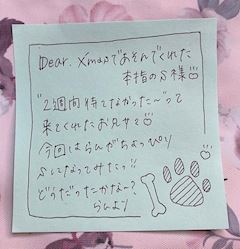 Dear. Xmasであそんでくれた
本指のS様♡
"2週間待てなかった〜"って
来てくれたお兄サマ♡
今回はらんがちょっぴり
Sになってみたっ!!
どうだったかなー?
らんより